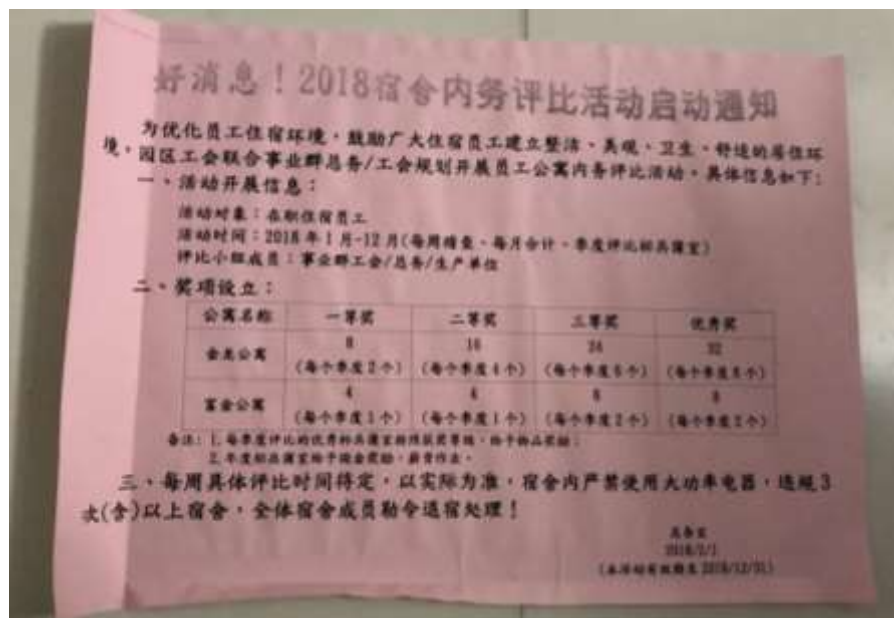 好消息！2018宿舍内务评比活动启动通知
为优化员工住宿环境，鼓励广大住宿员工建立整洁、美观、卫生、舒适的居住环
境，园区工会联合事业群总务/工会规划开展员工公寓内务评比活动。具体信息如下：
一、活动开展信息：
活动对象：在职住宿员工
活动时间：2018年1月-12月(每周稽查、每月合计、季度评比标兵蒲室)
评比小组成员：事业群工会/总务/生产单位
二、奖项设立：
公寓名称 一等奖 二等奖 三等奖 优秀奖
8 16 24 32
金龙公寓
(每个季度2个) (每个季度4个) (每个季度6个) (每个季度8个)
4 4 8 8
富金公寓
(每个季度1个) (每个季度1个) (每个季度2个) (每个季度2个)
备注：1.每季度评比的优秀标兵蒲室按照获奖等级，给予物品奖励；
2.年度标兵蒲室给予现金奖励，薪资作业。
三、每周具体评比时间待定，以实际为准，宿舍内严禁使用大功率电器，违规3
次(含)以上宿舍，全体宿舍成员勒令退宿处理！
2018/2/1
(本活动有效期至2018/12/31)